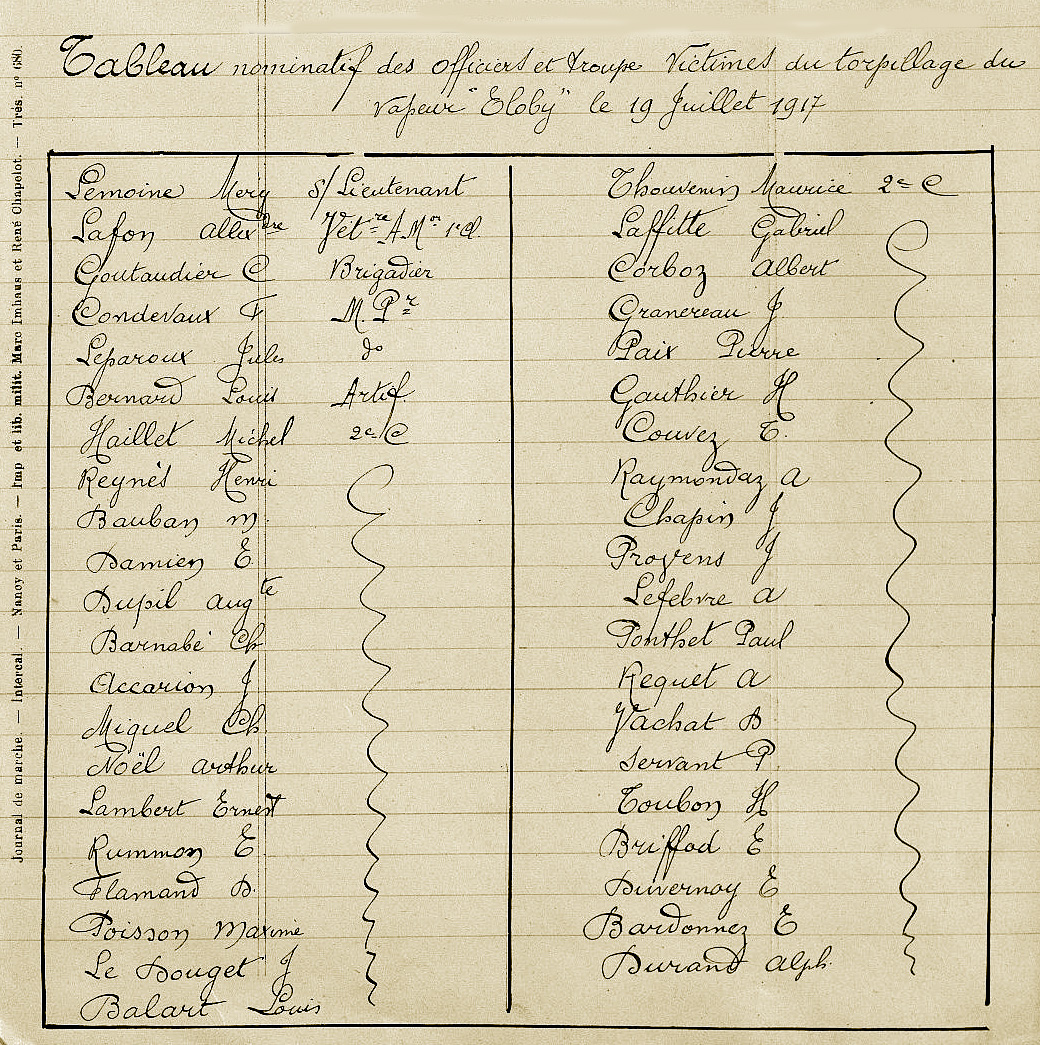 Tableau nominatif des officiers et troupe Victimes du torpillage du
vapeur "Eloby" le 19 Juillet 1917
Lemoine Mery S/Lieutenant
Lafon Allexdre Vétre A.Mor 1e Cl.
Goutaudier C Brigadier
Condevaux F M. Pr
Leparoux Jules do
Bernard Louis Artif
Haillet Michel 2e C
Reynès Henri
Bauban M.
Damien E
Dupil Augte
Barnabé Ch
Accarion J
Miquel Ch.
Noël Arthur
Lambert Ernest
Rummon E
Flamand D.
Poisson Maxime
Le Douget J
Balart Louis
Thouvenin Maurice 2e C
Laffitte Gabriel
Corboz Albert
Granereau J
Paix Pierre
Gauthier H
Couvez T.
Raymondaz A
Chapin J
Provens J
Lefebvre A
Ponthet Paul
Requet A
Vachat D
Servant P.
Toubon H
Briffod E
Duvernay E
Bardonnez E
Durand Alph.
Journal de marche. — Intercal. — Nancy et Paris. — Imp et lib. milit. Marc Imhaus et René Chapelot. — Trés. n° 680.